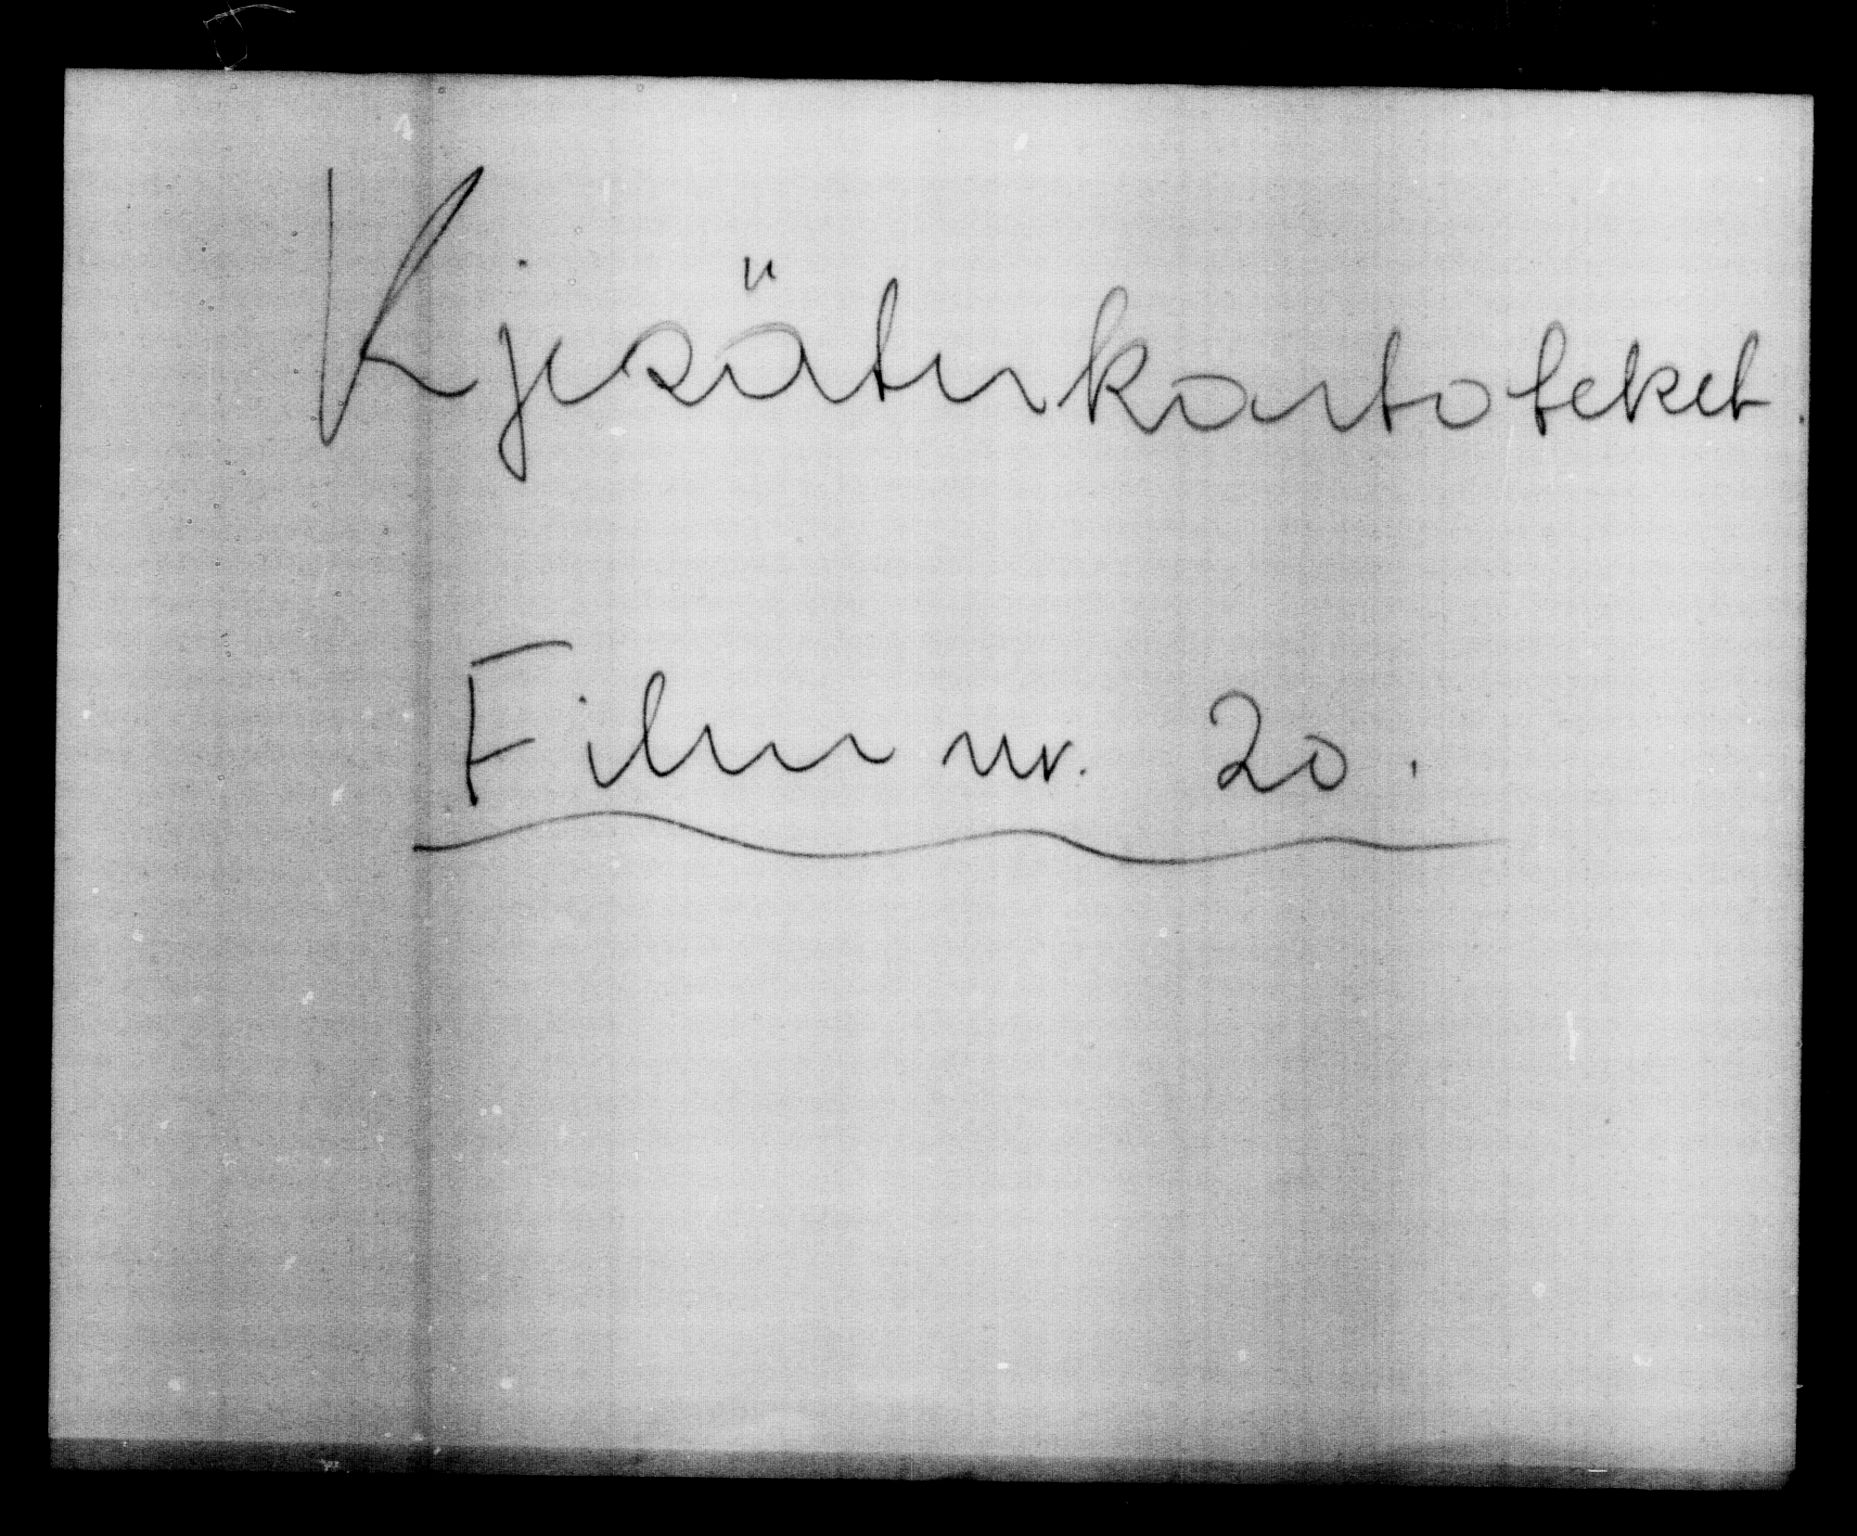 Kjesäterkartoteket.
Film nr. 20.